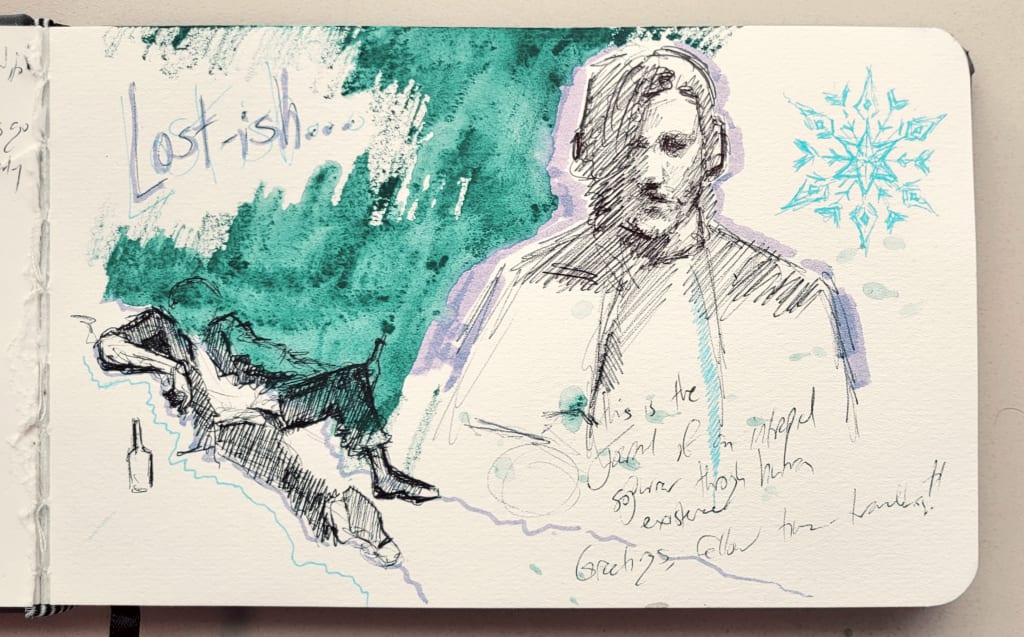 Lost-ish...
go
this is the
journal of an intrepid
sojourner through human
existence
Greetings, fellow time-travelers!!